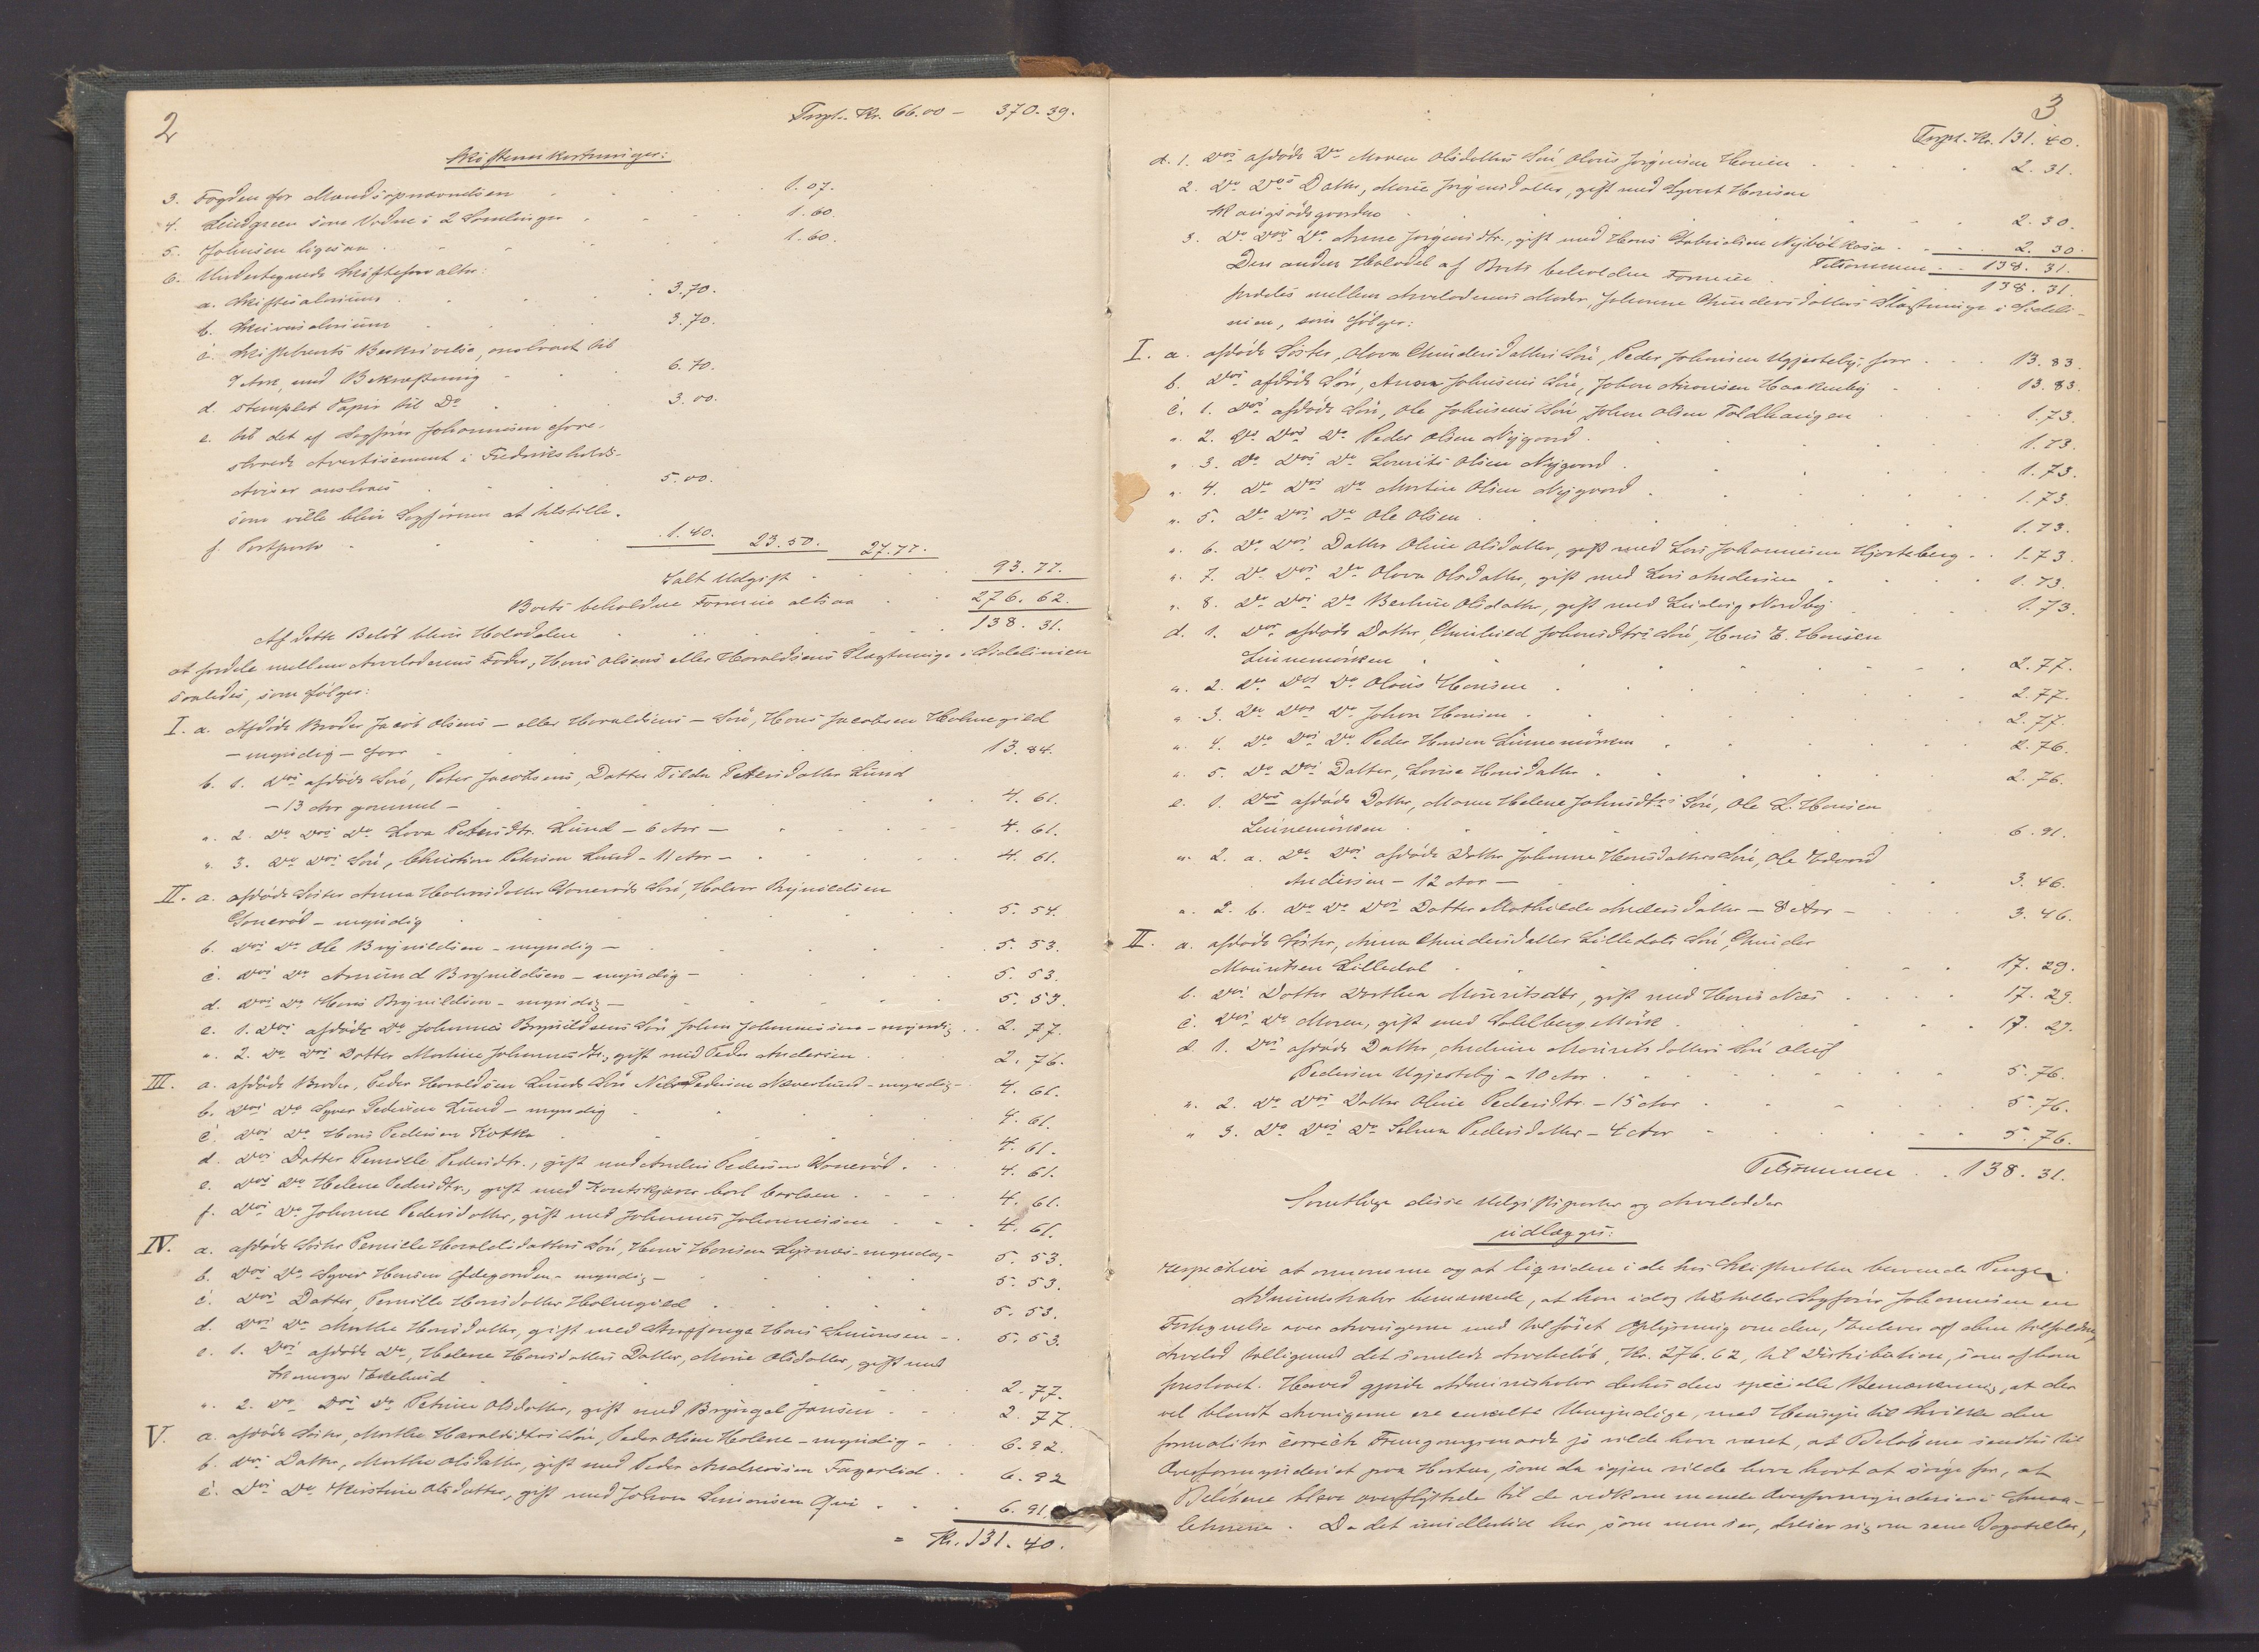 2
Trspt. Kr. 66.00 – 370.39.
Skifteomkostninger:
3. Fogden for Mandsopnævnelsen 1.07.
4. Lindgreen som Vidne i 2 Samlinger 1.60.
5. Johnsen ligesaa 1.60.
6. Undertegnede Skifteforvalter:
a. Skiftesalarium 3.70.
b. Skriversalarium 3.70.
c. Skiftebrevets Beskrivelse, anslaaet til
7 Ark, med Bekræftning 6.70.
d. stemplet Papir til Do 3.00.
e. til det af Sagfører Johannesen fore-
slaaede Avertissement i Fredrikshalds
Aviser ansloaes 5.00.
som ville blive Sagføreren at tilstille.
f. Postporto 1.40. 23.50. 27.77.
Ialt Udgift 93.77.
Boets beholdne Formue altsaa 276.62.
Af dette Beløb blive Halvdelen 138.31.
at fordele mellem Arveladerens Fader, Hans Olsens eller Haraldsens Slægtninge i Sidelinien
saaledes, som følger:
I. a. Afdøde Broder Jacob Olsens – eller Haraldsens – Søn, Hans Jacobsen Holmegild
– myndig – faar 13.84.
b. 1. Des afdøde Søn, Peter Jacobsens, Datter Tilda Petersdatter Lund
– 13 Aar gammel – 4.61.
" 2. Do Des Do Lova Petersdtr. Lund – 6 Aar – 4.61.
" 3. Do Des Søn, Christian Petersen Lund – 11 Aar – 4.61.
II. a. afdøde Søster Anna Halvorsdatter Sønn, Halvor Brynildsen
– myndig 5.54.
b. Des Do Ole Brynildsen – myndig – 5.53.
c. Des Do Amund Brynildsen – myndig – 5.53.
d. Des Do Hans Brynildsen – myndig – 5.53.
e. 1. Des afdøde Do Johannes Brynildsens Søn Johan Johannessen – myndig 2.77.
" 2. Do Des Datter Martine Johannesdtr., gift med Peder Andersen 2.76.
III. a. afdøde Broder, Peder Haraldsen Lunds Søn Nils Pedersen Næverlund – myndig – 4.61.
b. Des Do Syver Pedersen Lund – myndig 4.61.
c. Des Do Hans Pedersen Kotka 4.61.
d. Des Datter Pernille Pedersdtr., gift med Anders Pedersen 4.61.
e. Des Do Helene Pedersdtr., gift med Carl Carlsen 4.61.
f. Des Do Johanne Pedersdatter, gift med Johannes Johannessen 4.61.
IV. a. afdøde Søster Pernille Haraldsdatters Søn, Hans Hansen – myndig – 5.53.
b. Des Do Syver Hansen – myndig – 5.53.
c. Des Datter, Pernille Hansdatter Holmegild 5.53.
d. Des Do Marthe Hansdatter, gift med Hans Simonsen – 5.53.
e. 1. Des afdøde Do, Helene Hansdatters Datter, Marie Olsdatter, gift med
2.77.
" 2. Do Des Do Petrine Olsdatter, gift med Jansen 2.77.
V. a. afdøde Søster, Marthe Haraldsdtrs Søn, Peder Olsen Holene – myndig – 6.92.
b. Des Datter, Marthe Olsdatter, gift med Peder Andreassen Fagerlid 6.92
c. Des Do Kirstine Olsdatter, gift med Johan Simonsen 6.91.
= Kr. 131.40.
3
Trspt. Kr. 131.40.
d. 1. Des afdøde Do Maren Olsdatters Søn Olaus Jørgensen 2.31.
2. Do Des Datter, Marie Jørgensdatter, gift med Syvert Hansen
2.30.
3. Do Des Do Anne Jørgensdtr., gift med Hans Gabrielsen 2.30.
Tilsammen 138.31.
Den anden Halvdel af Boets beholdne Formue 138.31.
fordeles mellem Arveladerens Moder, Johanne Gundersdatters Slægtninge i Sideli-
nien, som følger:
I. a. afdøde Søster, Olava Gundersdatters Søn, Peder Johansen faar 13.83.
b. Des afdøde Søn, Johnsens Søn, Johan 13.83.
c. 1. Des afdøde Søn, Ole Johnsens Søn Johan Olsen 1.73.
" 2. Do Des Do Peder Olsen Nygaard 1.73.
" 3. Do Des Do Laurits Olsen Nygaard 1.73.
" 4. Do Des Do Martin Olsen Nygaard 1.73.
" 5. Do Des Do Ole Olsen 1.73.
" 6. Do Des Datter Oline Olsdatter, gift med Lars Johannesen Hjorteberg 1.73.
" 7. Do Des Do Olava Olsdatter, gift med Lars Andersen 1.73.
" 8. Do Des Do Berthine Olsdatter, gift med Ludvig Nordby 1.73.
d. 1. Des afdøde Datter, Gunhild Johnsdtrs Søn, Hans E. Hansen
Linnemørken 2.77.
" 2. Do Des Do Olaus Hansen 2.77.
" 3. Do Des Do Johan Hansen 2.77.
" 4. Do Des Do Peder Hansen Linnemørken 2.76.
" 5. Do Des Datter, Lovise Hansdatter 2.76.
e. 1. Des afdøde Datter, Maren Helene Johnsdtrs Søn, Ole L. Hansen
Linnemørken 6.91.
" 2. a. Do Des afdøde Datter Johanne Hansdatters Søn, Ole Edvard
Andersen – 12 Aar – 3.46.
" 2. b. Do Do Des Datter Mathilde Andersdatter – 8 Aar – 3.46.
II. a. afdøde Søster, Anna Gundersdatter Lilledals Søn, Gunder
Mauritsen Lilledal 17.29.
b. Des Datter Dorthea Mauritsdtr, gift med Hans Næs 17.29.
c. Des Do Maren, gift med Mørk 17.29.
d. 1. Des afdøde Datter, Andrine Mauritsdatters Søn Oluf
Pedersen – 10 Aar 5.76.
" 2. Do Des Datter Oline Pedersdtr. – 15 Aar 5.76.
" 3. Do Des Do Selma Pedersdatter – 4 Aar 5.76.
Tilsammen 138.31.
Samtlige disse Udgiftsposter og Arvelodder
udlægges:
respective at annamme og at liqvidere i de hos Skifteretten beroende Penge.
Administrator bemærkede, at han idag tilstiller Sagfører Johannesen en
Fortegnelse over Arvingerne med tilføiet Oplysning om den, Enhver af dem tilfaldne
Arvelod tilligemed det samlede Arvebeløb, Kr. 276.62, til Distribution, som af ham
foreslaaet. Herved gjorde Administrator derhos den specielle Bemærkning, at der
vel blandt Arvingerne ere enkelte Umyndige, med Hensyn til hvilke den
formaliter correcte Fremgangsmaade jo vilde have været, at Beløbene sendtes til
Overformynderiet paa Horten, som da igjen vilde have havt at sørge for, at
Beløbene bleve overflyttede til de vedkommende Overformynderier i Smaa-
lehnene. Da det imidlertid her, som man ser, dreier sig om rene Bagateller,